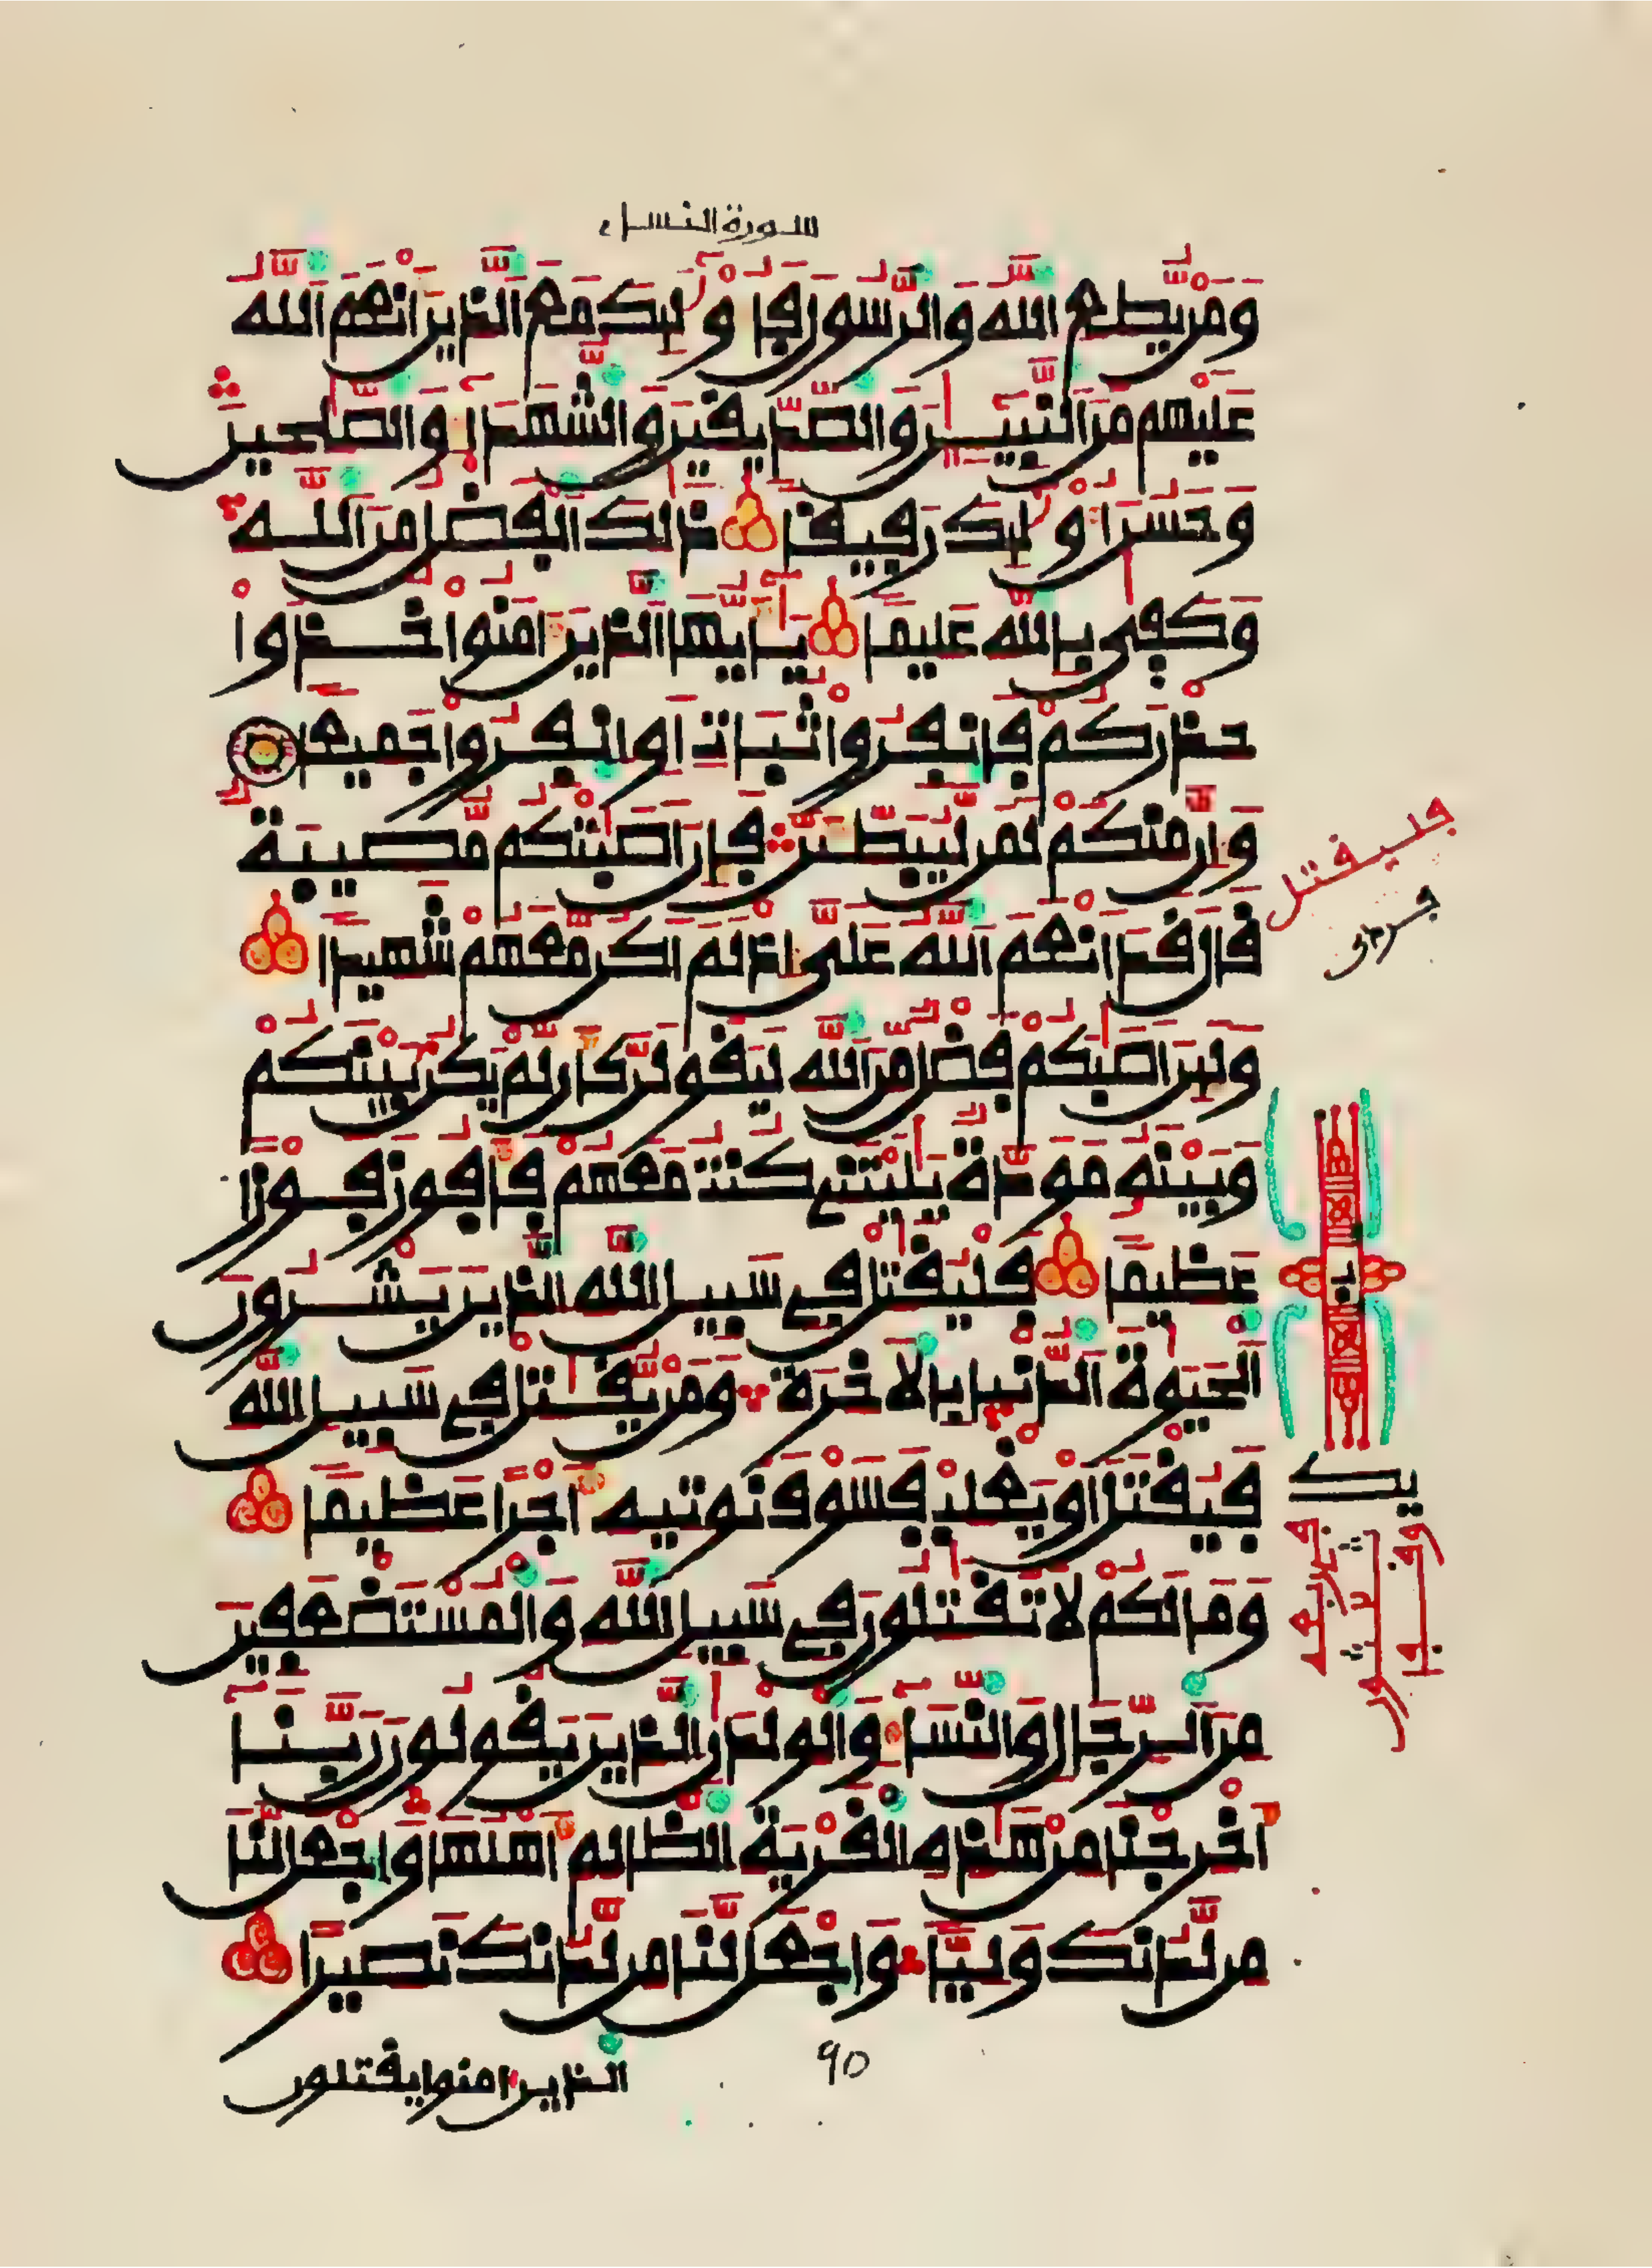 سورة النساء
وَمَنْ يُّطِعِ اِللَّهَ وَالرَّسُولَ فَأُوْلَٰٓئِكَ مَعَ اَلذِينَ أَنْعَمَ اَللَّهُ
عَلَيْهِم مِّنَ اَلنَّبِيٓـِٕينَ وَالصِّدِّيقِينَ وَالشُّهَدَآءِ وَالصَّٰلِحِينَ
وَحَسُنَ أُوْلَٰٓئِكَ رَفِيقاً ذَٰلِكَ اَلْفَضْلُ مِنَ اَللَّهِ
وَكَفَىٰ بِاللَّهِ عَلِيماً يَٰٓأَيُّهَا اَلذِينَ ءَامَنُواْ خُذُواْ
حِذْرَكُمْ فَانفِرُواْ ثُبَاتٍ أَوِ اِنفِرُواْ جَمِيعاً
وَإِنَّ مِنكُمْ لَمَن لَّيُبَطِّئَنَّ فَإِنْ أَصَٰبَتْكُم مُّصِيبَةٌ
قَالَ قَدْ أَنْعَمَ اَللَّهُ عَلَىَّ إِذْ لَمْ أَكُن مَّعَهُمْ شَهِيداً
وَلَئِنْ أَصَٰبَكُمْ فَضْلٌ مِّنَ اَللَّهِ لَيَقُولَنَّ كَأَن لَّمْ يَكُنْ بَيْنَكُمْ
وَبَيْنَهُۥ مَوَدَّةٌ يَٰلَيْتَنِے كُنتُ مَعَهُمْ فَأَفُوزَ فَوْزاً
عَظِيماً فَلْيُقَٰتِلْ فِے سَبِيلِ اِللَّهِ اِلذِينَ يَشْرُونَ
اَلْحَيَوٰةَ اَلدُّنْيَا بِالْأَخِرَةِ وَمَنْ يُّقَٰتِلْ فِے سَبِيلِ اِللَّهِ
فَيُقْتَلْ أَوْ يَغْلِبْ فَسَوْفَ نُوتِيهِ أَجْراً عَظِيماً
وَمَا لَكُمْ لَا تُقَٰتِلُونَ فِے سَبِيلِ اِللَّهِ وَالْمُسْتَضْعَفِينَ
مِنَ اَلرِّجَالِ وَالنِّسَآءِ وَالْوِلْدَٰنِ اِلذِينَ يَقُولُونَ رَبَّنَآ
أَخْرِجْنَا مِنْ هَٰذِهِ اِلْقَرْيَةِ اِلظَّالِمِ أَهْلُهَا وَاجْعَل لَّنَا
مِن لَّدُنكَ وَلِيّاً وَاجْعَل لَّنَا مِن لَّدُنكَ نَصِيراً
90
الذين امنوا يقتلون
فليقتل